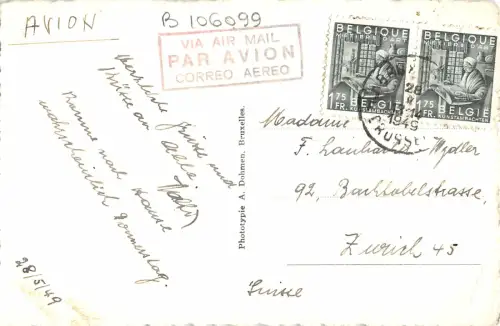 AVION
B 106099
VIA AIR MAIL
PAR AVION
CORREO AEREO
BELGIQUE
METIERS D'ART
1.75
FR.
BELGIE
KUNSTAMBACHTEN
BELGIQUE
METIERS D'ART
1.75
FR.
BELGIE
KUNSTAMBACHTEN
1949
Herzliche Grüsse und
Küsse an alle
Komme nach Hause
wahrscheinlich Donnerstag.
28/5/49
Phototypie A. Dohmen, Bruxelles.
Madame
F.
92, Bachtobelstrasse,
Zurich 45
Suisse